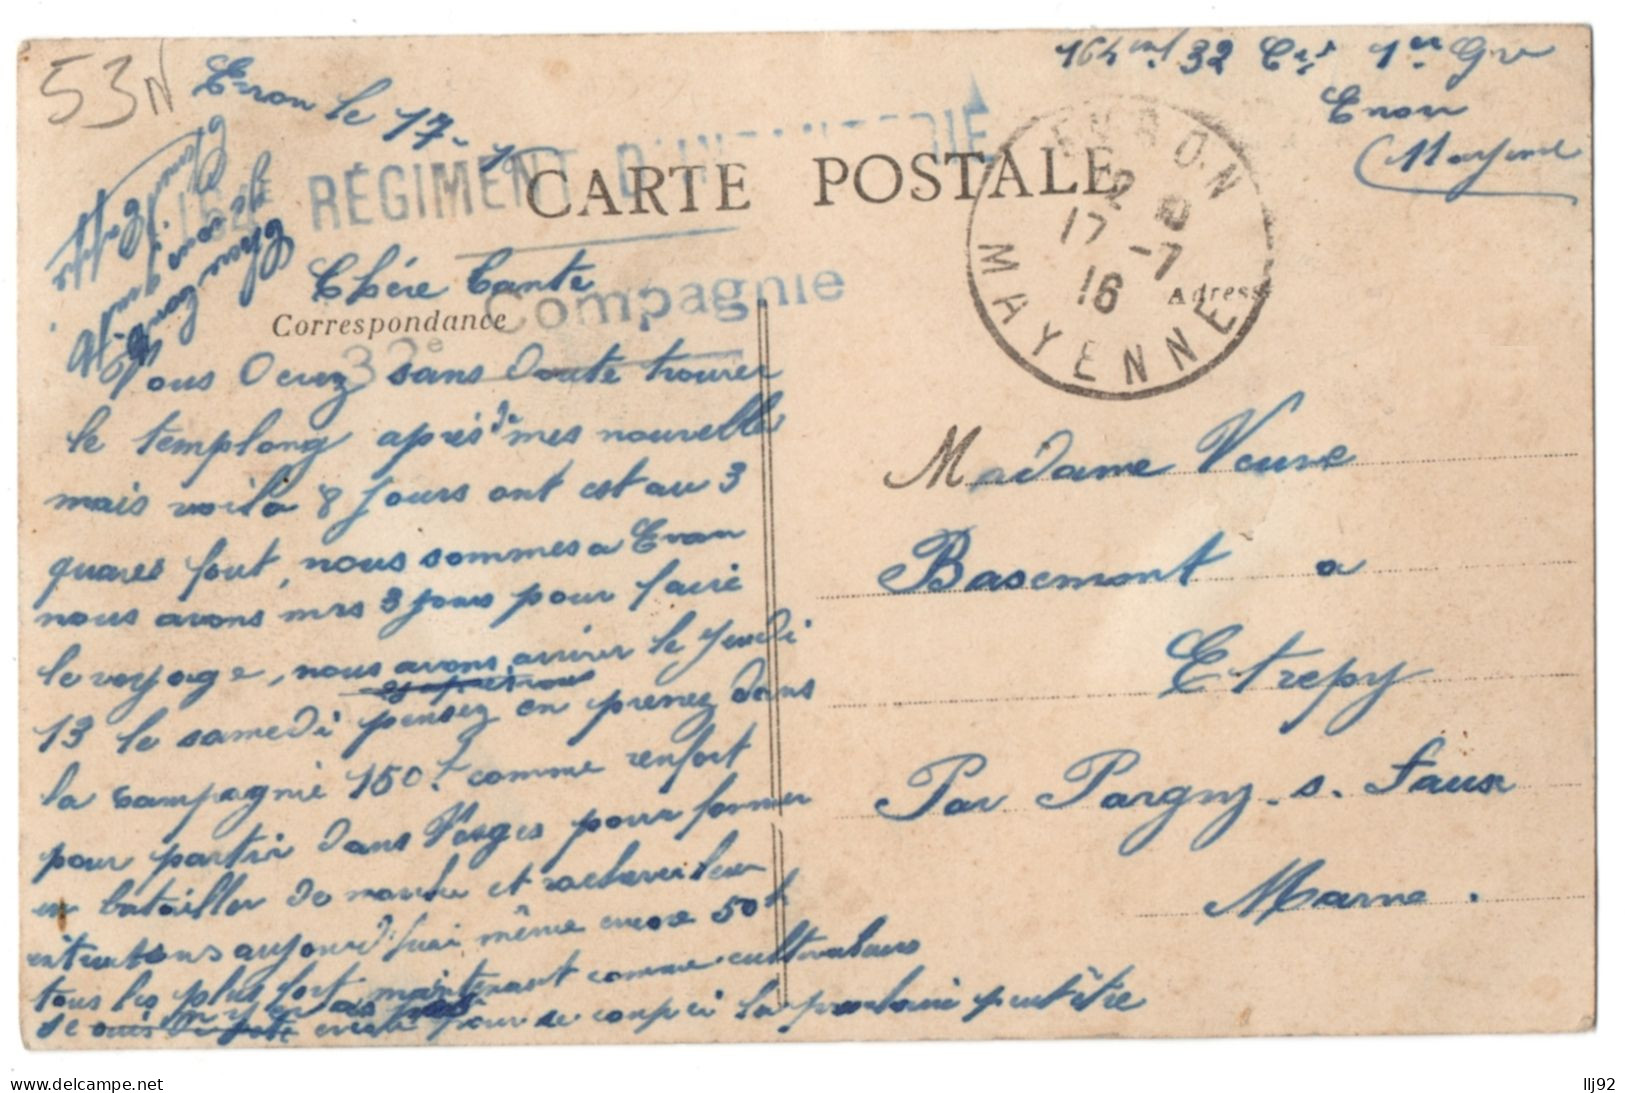 53N
164 32 Cie 1er Gr
Evron
Mayenne
Evron le 17-
164E RÉGIMENT D'INFANTERIE
CARTE POSTALE
EVRON
12 10
17 -7
16
MAYENNE
Chére Tante
Compagnie
33e
Correspondance
Adresse
Vous Devez sans Doute trouver
le templong aprés de mes nouvelle
mais voila 8 Jours ont est au 3
quares fout, nous sommes a Evron
nous avons mis 3 jours pour faire
le voyage, nous avons arriver le Jeudi
13 le samedi pensez en prenez dans
la compagnie 150 comme renfort
pour partir dans Vosges pour former
un batailler de marche et
aujourd'hui même encore 50 h
tous les plus fort maintenant comme cultivateurs
se pour se la prochaine peutêtre
Madame Veuve
Basemont a
Etrepy
Par Pargny. s. Saux
Marne.
llj92